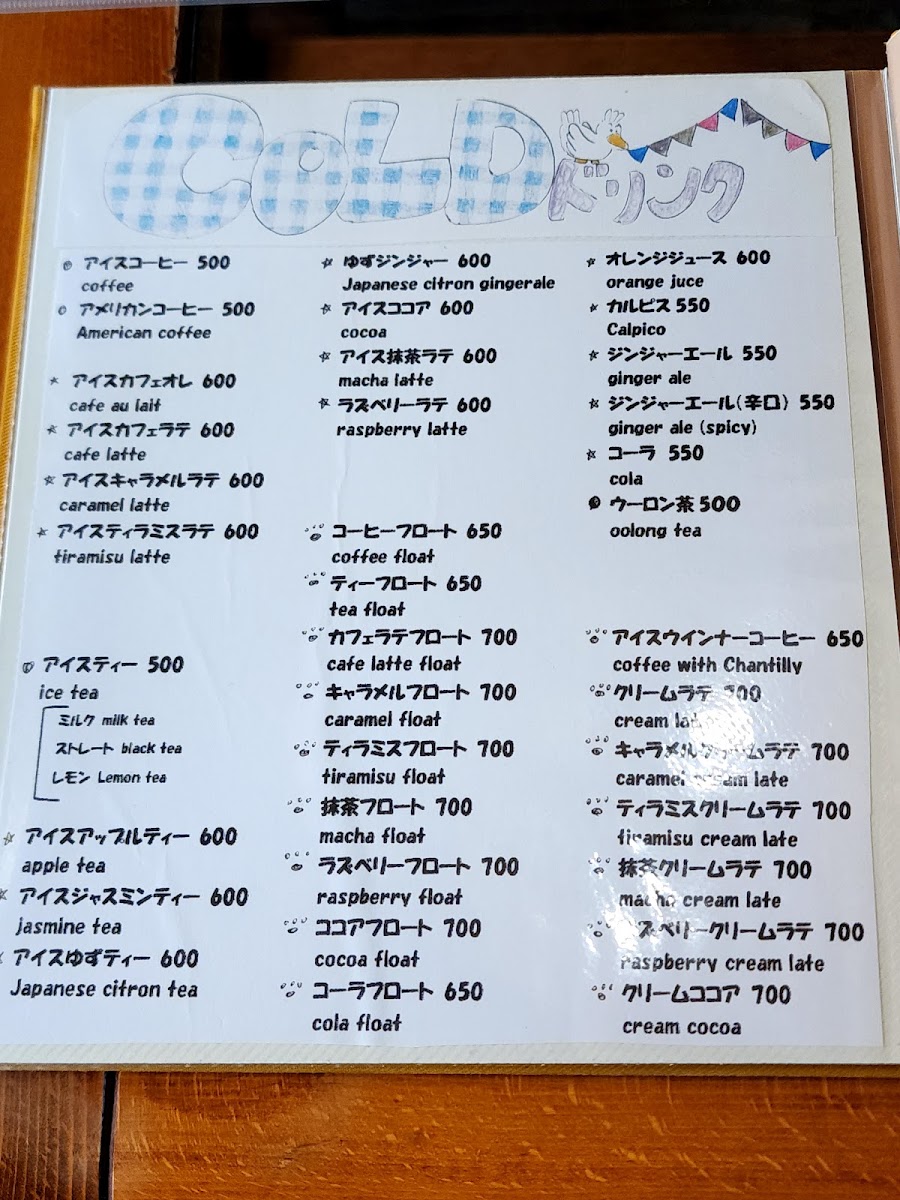 COLD ドリンク
アイスコーヒー 500
coffee
アメリカンコーヒー 500
American coffee
アイスカフェオレ 600
cafe au lait
アイスカフェラテ 600
cafe latte
アイスキャラメルラテ 600
caramel latte
アイスティラミスラテ 600
tiramisu latte
アイスティー 500
ice tea
ミルク milk tea
ストレート black tea
レモン Lemon tea
アイスアップルティー 600
apple tea
アイスジャスミンティー 600
jasmine tea
アイスゆずティー 600
Japanese citron tea
ゆずジンジャー 600
Japanese citron gingerale
アイスココア 600
cocoa
アイス抹茶ラテ 600
macha latte
ラズベリーラテ 600
raspberry latte
コーヒーフロート 650
coffee float
ティーフロート 650
tea float
カフェラテフロート 700
cafe latte float
キャラメルフロート 700
caramel float
ティラミスフロート 700
tiramisu float
抹茶フロート 700
macha float
ラズベリーフロート 700
raspberry float
ココアフロート 700
cocoa float
コーラフロート 650
cola float
オレンジジュース 600
orange juce
カルピス 550
Calpico
ジンジャーエール 550
ginger ale
ジンジャーエール(辛口) 550
ginger ale (spicy)
コーラ 550
cola
ウーロン茶 500
oolong tea
アイスウインナーコーヒー 650
coffee with Chantilly
クリームラテ 700
cream
キャラメルクリームラテ 700
caramel cream late
ティラミスクリームラテ 700
tiramisu cream late
抹茶クリームラテ 700
macha cream late
ラズベリークリームラテ 700
raspberry cream late
クリームココア 700
cream cocoa